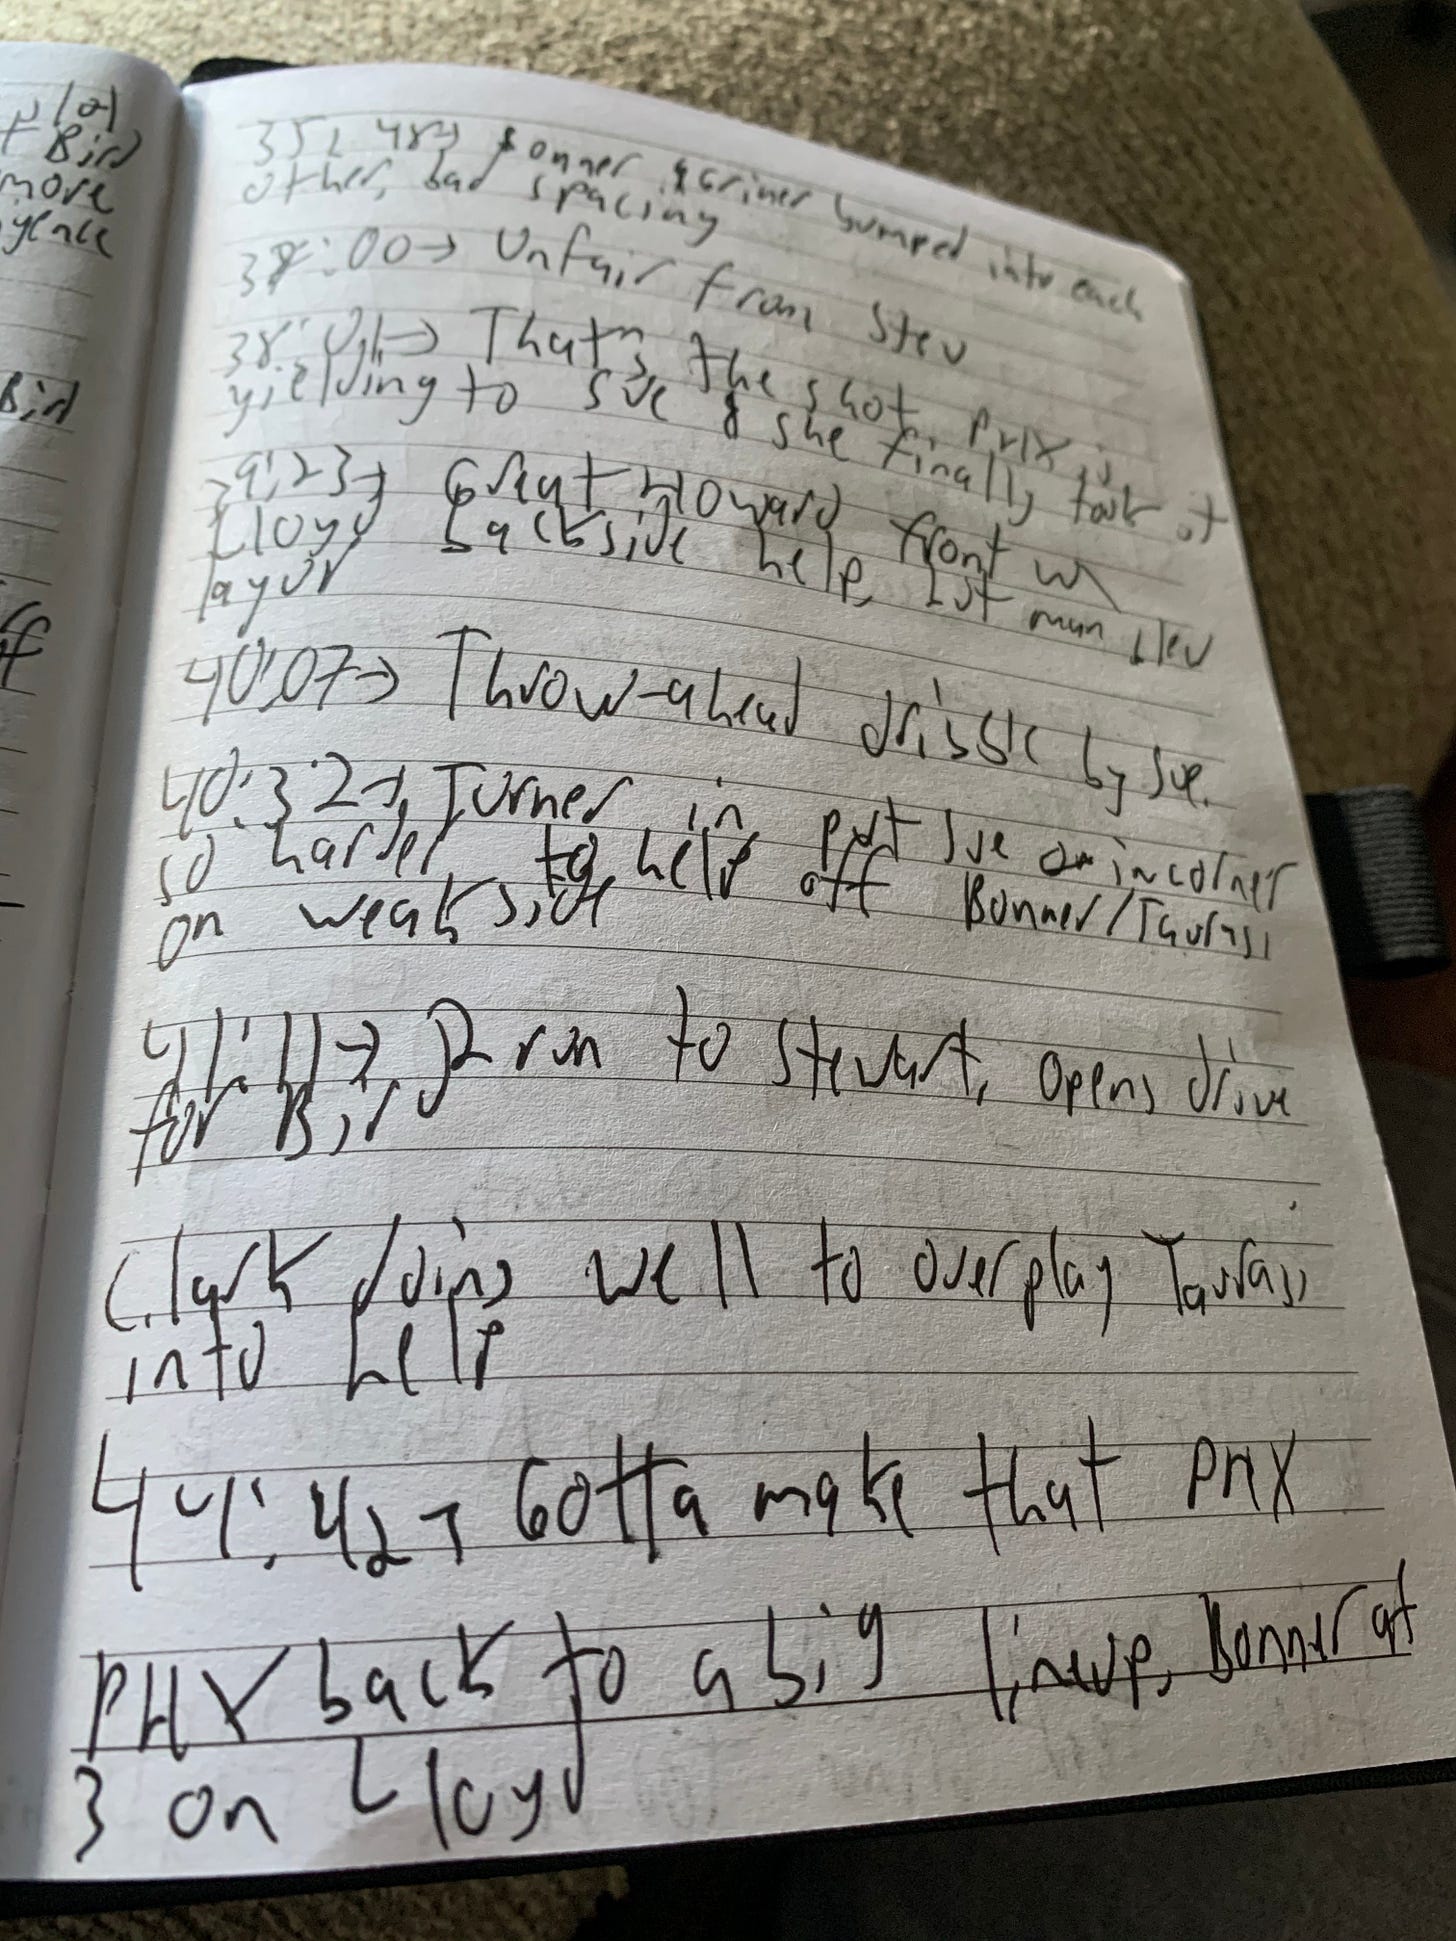 lot
+ Bird
more
Bird
35:48→ Bonner & Griner bumped into each
other, bad spacing
38:00→ Unfair from Stew
38: →That's the shot PHX is
yielding to Sue & she finally took it
39:23→ Great Howard front w\
Lloyd backside help, 1st man
layup
40:07→ Throw-ahead dribble by Sue.
40:32→, Turner in put Sue in corner
so harder to help off Bonner/Taurasi
on weakside
41:11→, J2 run to Stewart, opens drive
for Bird
Clark doing well to overplay Taurasi
into help
44:42→ Gotta make that PHX
PHX back to a big lineup, Bonner at
3 on Lloyd